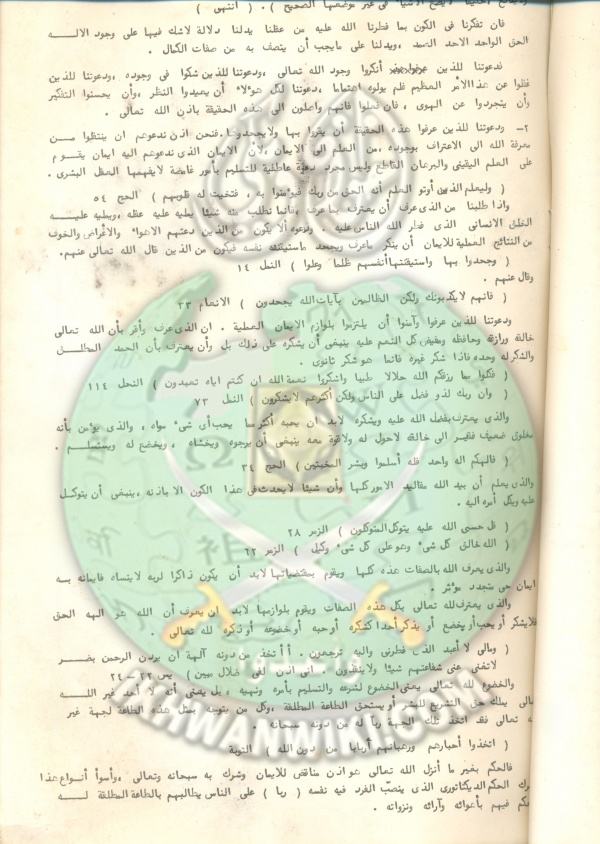 فان تفكرنا في الكون بما فطرنا الله عليه من عقلنا يدلنا دلالة لاشك فيها على وجود الالـــه
الحق الواحد الاحد الصمد ، ويدلنا على مايجب أن يتصف به من صفات الكمال .
فدعوتنا للذين أنكروا وجود الله تعالى ، ودعوتنا للذين شكوا في وجوده ، ودعوتنا للذين
غفلوا عن هذا الأمر العظيم فلم يولوه اهتماما ، دعوتنا لكل هؤلاء أن يعيدوا النظر ، وأن يحسنوا التفكير
وأن يتجردوا عن الهوى ، فان فعلوا فانهم واصلون الى هذه الحقيقة باذن الله تعالى .
٢ـ ودعوتنا للذين عرفوا هذه الحقيقة أن يقروا بها ولايجحدوها . فنحن اذن ندعوهم ان ينتقلوا مــن
معرفة الله الى الاعتراف بوجوده ، من العلم الى الايمان ، لأن الايمان الذى ندعوهم اليه ايمان يقــوم
على العلم اليقيني والبرهان القاطع وليس مجرد دعوة عاطفية للتسليم بأمور غامضة لايفهمها العقل البشرى .
( وليعلم الذين أوتو العلم أنه الحق من ربك فيؤمنوا به ، فتخبت له قلوبهم ) الحج ٥٤
واذا طلبنا من الذى عرف أن يعترف بما عرف ، فانما نطلب منه شيئا يمليه عليه عقله ، ويمليه عليـــه
الخلق الانساني الذى فطر الله الناس عليه . وندعوه ألا يكون من الذين دعتهم الاهواء والاغراض والخوف
من النتائج العملية للايمان أن ينكر ماعرف ويجحد مااستيقنته نفسه فيكون من الذين قال الله تعالى عنهم .
( وجحدوا بها واستيقنتها أنفسهم ظلما وعلوا ) النمل ١٤
وقال عنهم .
( فانهم لايكذبونك ولكن الظالمين بآيات الله يجحدون ) الانعام ٣٣
ودعوتنا للذين عرفوا وآمنوا أن يلتزموا بلوازم الايمان العملية . ان الذى عرف وأقر بأن الله تعالى
خالقه ورازقه وحافظه ومفيض كل النعم عليه ينبغي أن يشكره على ذلك بل وأن يعترف بأن الحمد المطلــق
والشكر له وحده فاذا شكر غيره فانما هو شكر ثانوى .
( فكلوا مما رزقكم الله حلالا طيبا واشكروا نعمة الله ان كنتم اياه تعبدون ) النحل ١١٤
( وان ربك لذو فضل على الناس ولكن أكثرهم لايشكرون ) النمل ٧٣
والذى يعترف بفضل الله عليه ويشكره لابد ان يحبه أكثر مما يحب أى شىء سواه ، والذى يؤمن بأنه
مخلوق ضعيف فقير الى خالقه لاحول له ولاقوة معه ينبغي أن يرجوه ويخشاه ، ويخضع له ويستسلم .
( فالهكم اله واحد فله أسلموا وبشر المخبتين ) الحج ٣٤
والذى يعلم أن بيد الله مقاليد الامور كلها وأن شيئا لايحدث في هذا الكون الا باذنه ، ينبغي أن يتوكــل
عليه ويكل أمره اليه .
( قل حسبي الله عليه يتوكل المتوكلون ) الزمر ٣٨
( الله خالق كل شىء وهو على كل شىء وكيل ) الزمر ٦٢
والذى يعرف الله بالصفات هذه كلها ويقوم بمقتضياتها لابد أن يكون ذاكرا لربه لاينساه فايمانه بــه
ايمان حي متجدد مؤثر .
والذى يعترف لله تعالى بكل هذه الصفات ويقوم بلوازمها لابد ان يعرف أن الله هو الهه الحق
فلايشكر أو يحب أو يخضع أو يذكر أحدا كشكره أو حبه أو خضوعه أو ذكره لله تعالى .
( ومالى لا أعبد الذى فطرني واليه ترجعون . أأتخذ من دونه آلهة ان يردن الرحمن بضــر
لاتغني عني شفاعتهم شيئا ولاينقذون . اني اذن لفي ضلال مبين ) يس ٢٢ - ٢٤
والخضوع لله تعالى يعني الخضوع لشرعه والتسليم بأمره ونهيه ، بل يعني أنه لا أحد غير اللــه
يملك حق التشريع للبشر أو يستحق الطاعة المطلقة ، وكل من يتوجه بمثل هذه الطاعة لجهة غير
تعالى فقد اتخذ تلك الجهة ربا له من دونه سبحانه .
( اتخذوا أحبارهم ورهبانهم أربابا من دون الله ) التوبة
فالحكم بغير ما أنزل الله تعالى هو اذن مناقض للايمان وشرك به سبحانه وتعالى ، وأسوأ أنــواع هذا
الحكم الديكتاتورى الذى ينصب الفرد فيه نفسه ( ربا ) على الناس يطالبهم بالطاعة المطلقة لـــه
فيهم بأهوائه وآرائه ونزواته .
IKHWANWIKI.COM